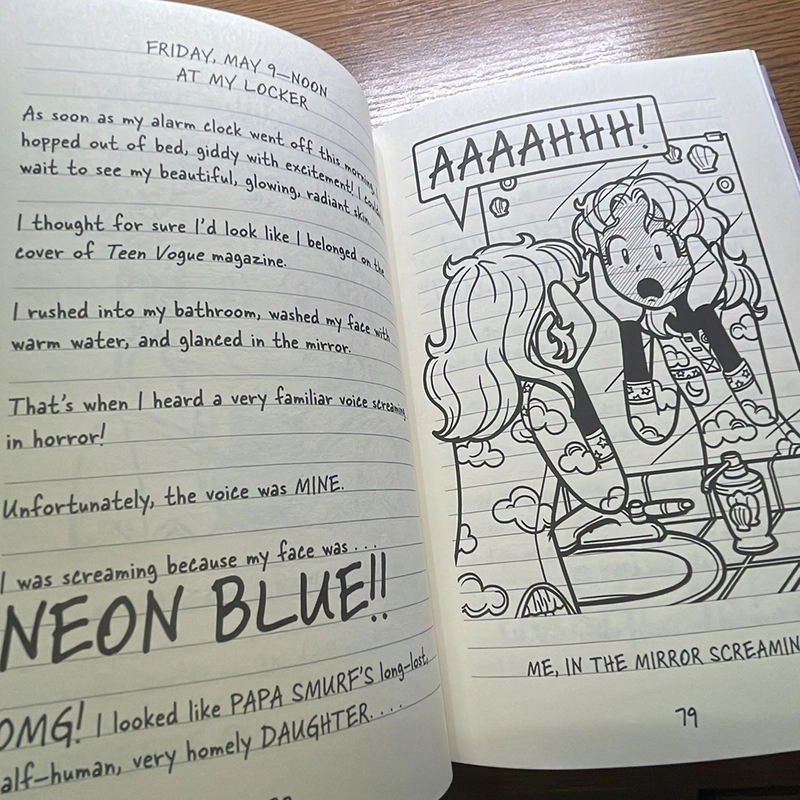 FRIDAY, MAY 9—NOON
AT MY LOCKER
As soon as my alarm clock went off this morning,
hopped out of bed, giddy with excitement! I
wait to see my beautiful, glowing, radiant skin.
I thought for sure I'd look like I belonged on the
cover of Teen Vogue magazine.
I rushed into my bathroom, washed my face with
warm water, and glanced in the mirror.
That's when I heard a very familiar voice screaming
in horror!
Unfortunately, the voice was MINE.
I was screaming because my face was . . .
NEON BLUE!!
OMG! I looked like PAPA SMURF'S long-lost,
half-human, very homely DAUGHTER. . . .
AAAAHHH!
ME, IN THE MIRROR SCREAMIN
79